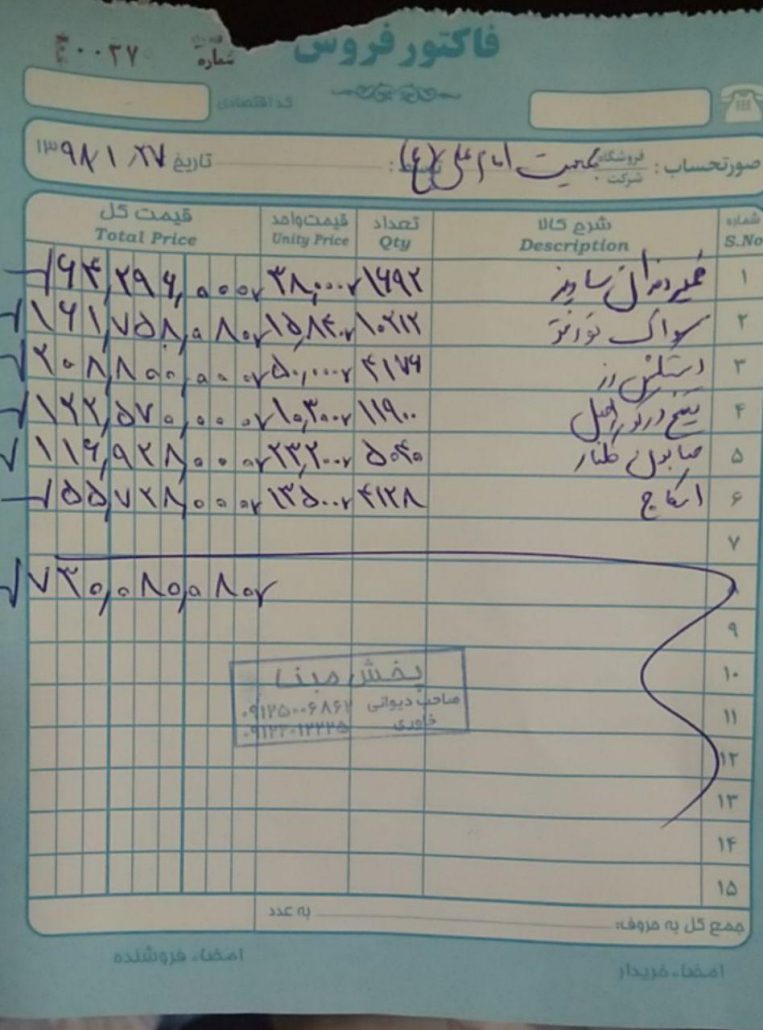 فاکتور فروش
شماره ۰۰۲۷
کد اقتصادی
صورتحساب : فروشگاه شرکت جمعیت امام علی (ع) تاریخ ۱۳۹۸/۱/۲۷
شماره شرح کالا تعداد قیمت واحد قیمت کل
S.No Description Qty Unity Price Total Price
۱ خمیر دندان ساویز ۱۶۹۲ ۳۸,۰۰۰ ۶۴,۲۹۶,۰۰۰
۲ مسواک ۱۰۲۱۲ ۱۵,۸۴۰ ۱۶۱,۷۵۸,۰۸۰
۳ دستکش رز ۴۱۷۶ ۵۰,۰۰۰ ۲۰۸,۸۰۰,۰۰۰
۴ تیغ دورکو اصل ۱۱۹۰۰ ۱۰,۳۰۰ ۱۲۲,۵۷۰,۰۰۰
۵ صابون گلنار ۵۰۴۰ ۲۳,۲۰۰ ۱۱۶,۹۲۸,۰۰۰
۶ اسکاج ۴۱۲۸ ۱۳۵۰۰ ۵۵,۷۲۸,۰۰۰
۷
۷۳۰,۰۸۰,۰۸۰
۹
۱۰
پخش مبنا
صاحب دیوانی ۰۹۱۲۵۰۰۶۸۶۲
خاوری
۱۱
۱۲
۱۳
۱۴
۱۵
جمع کل به حروف: به عدد
امضاء خریدار امضاء فروشنده